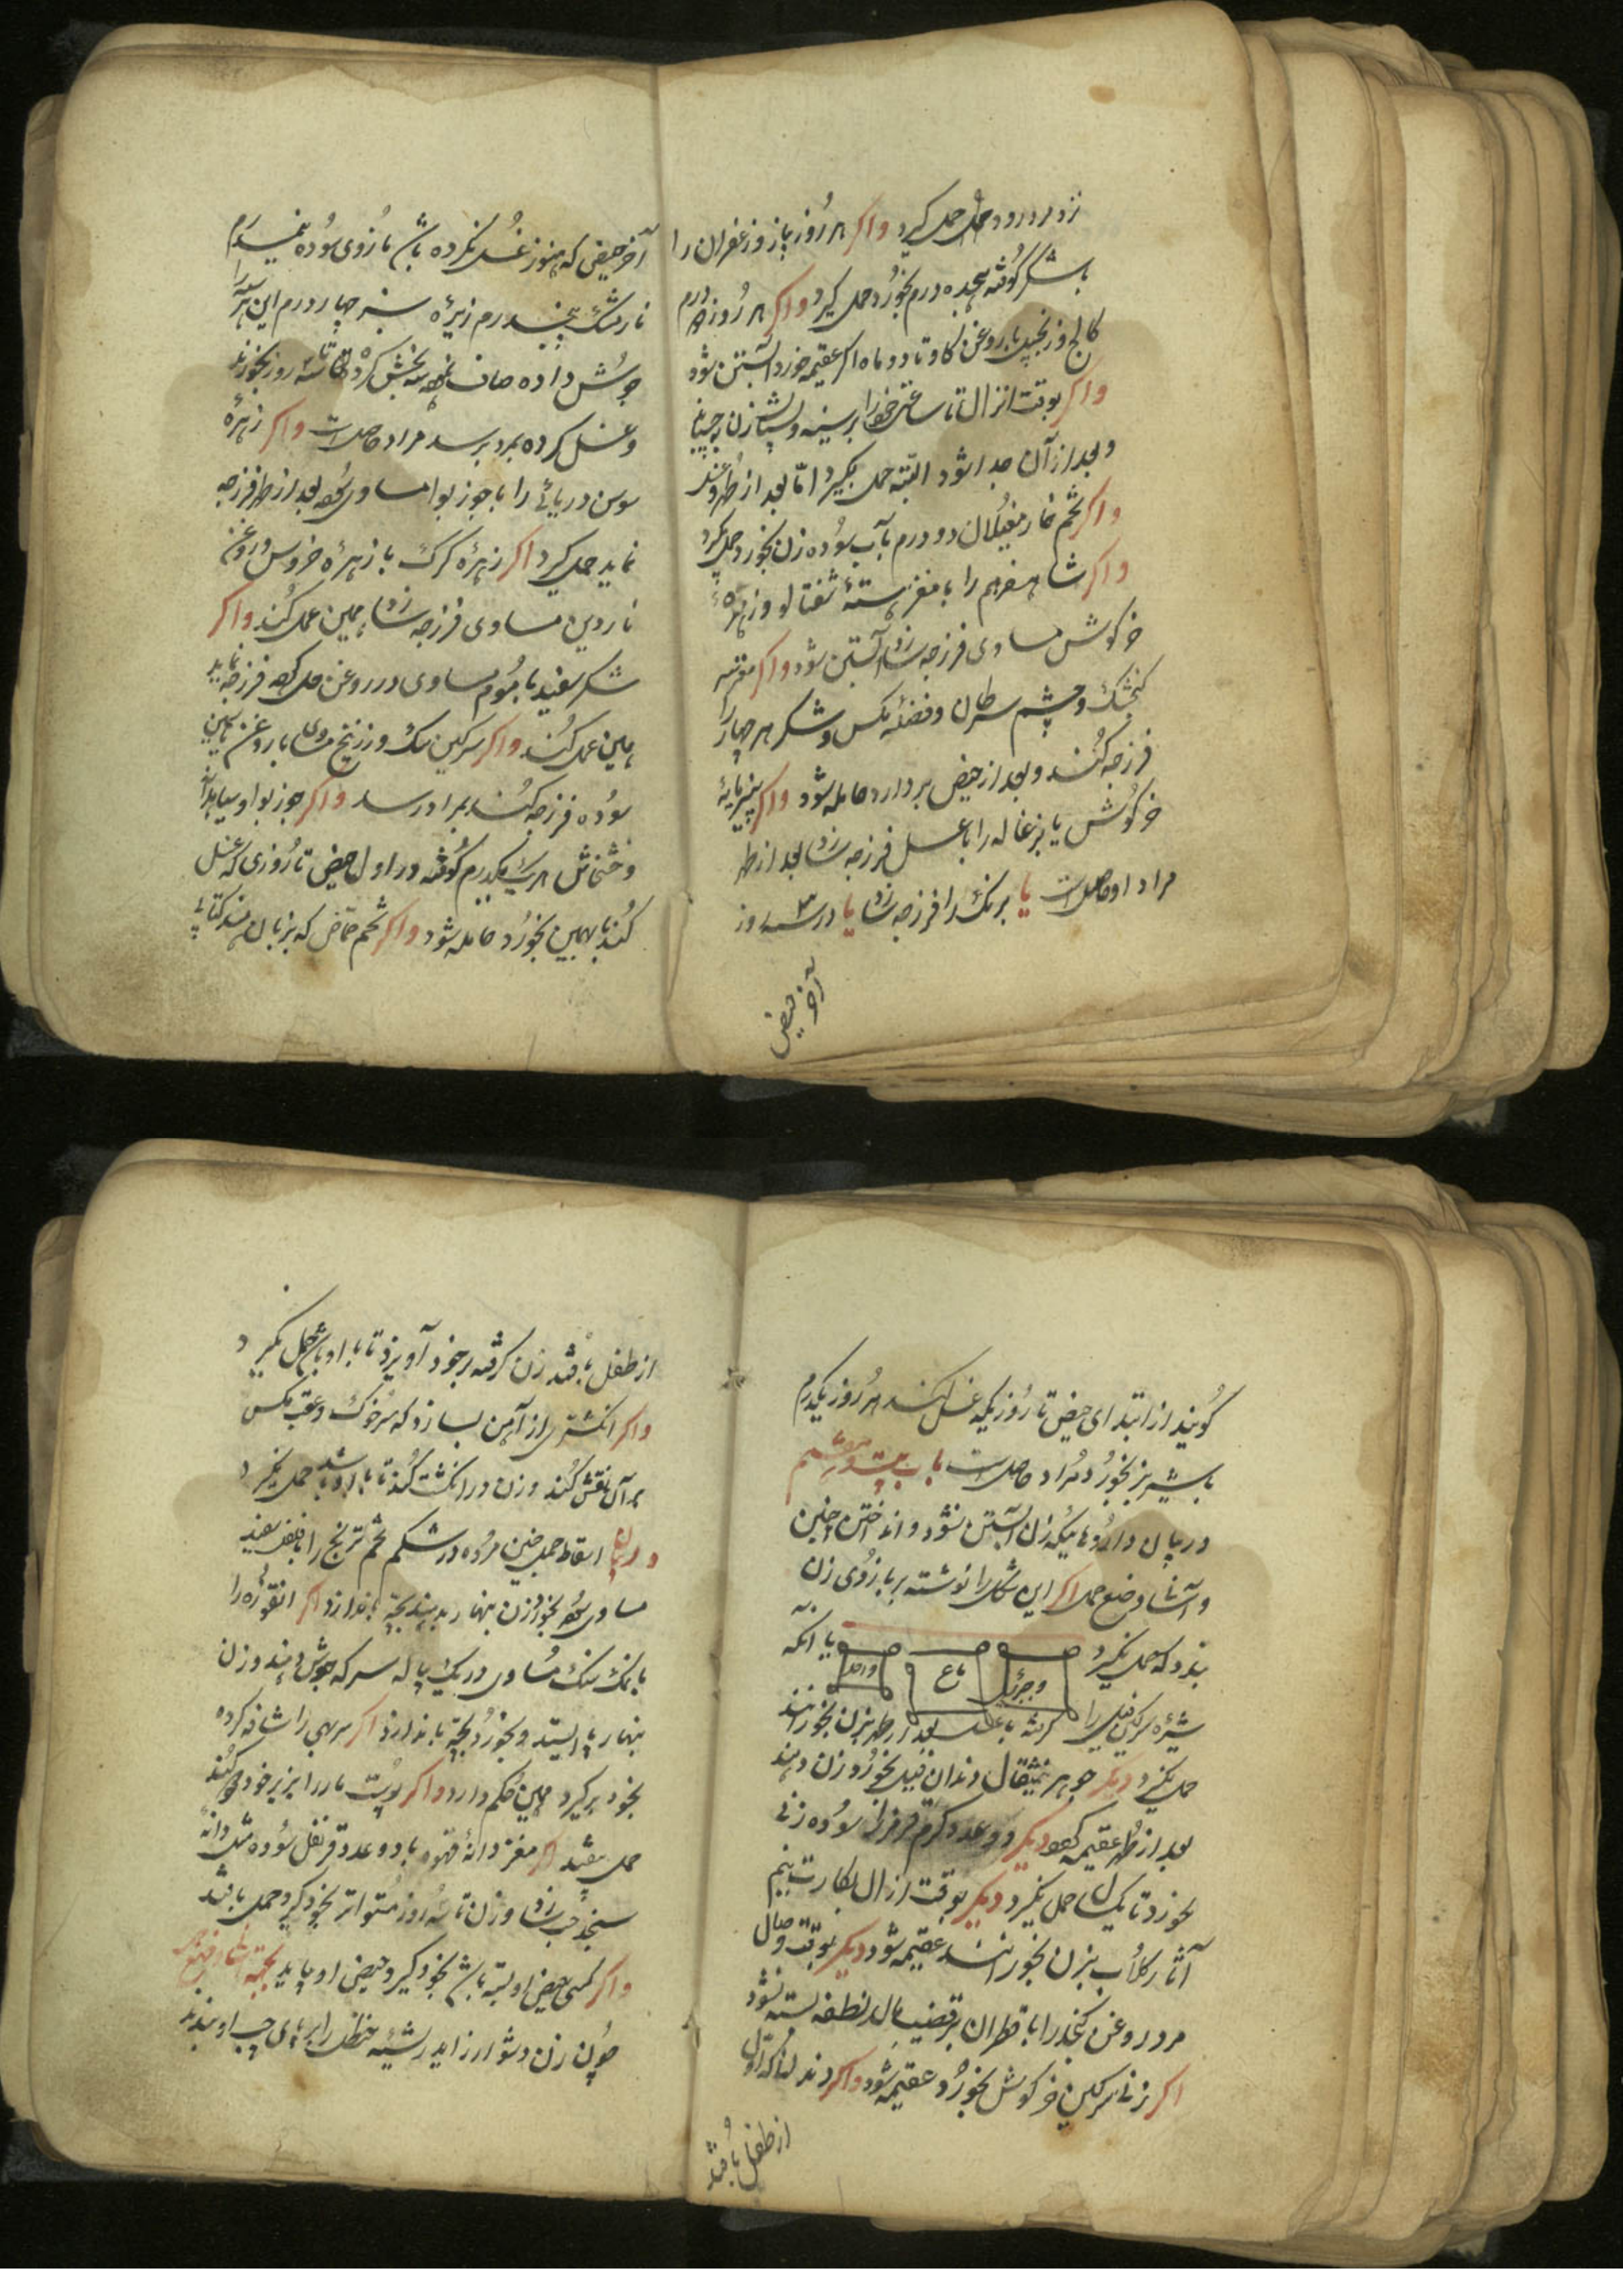 نزد مرد رود حمل گیرد واکر هر روز پیاز و زعفران را
با شکر کوفته هیجده درم بخورد حمل گیرد واکر هر روز درم
کالج و زنجبیل با روغن کاو تا دو ماه اکر عقیمه خورد آبستن شود
واکر بوقت انزال تا ساعتی خود را بر سینه و پستان زن چسپاند
و بعد از آن جدا شود البته حمل بگیرد امّا بعد از طهر و غسل
واکر تخم خار مغیلان دو درم بآب سوده زن بخورد حمل گیرد
واکر شاهسفرهم را با مغز هستهٔ شفتالو و زهرهٔ
خرکوش مساوی فرزجه سازد آبستن شود واکر مغز سر
کنجشک و چشم سرطان و فضلهٔ مکس و شکر هر چهار را
فرزجه کنند و بعد از حیض بردارد حامله شود واکر پنیرمایهٔ
خرکوش یا بزغاله را با عسل فرزجه سازد بعد از طهر
مراد او حاصلست یا برنک را فرزجه سازد یا در سه روز
آخر حیض
آخر حیض که هنوز غسل نکرده باشد مازوی سوده نیمدرم
نارمشک پنجدرم زیرهٔ سبز چهار درم این هر سه را
جوش داده صاف نموده سه بخش کرده تا سه روز بخورند
و غسل کرده بمرد برسد مراد حاصلست واکر زهرهٔ
سوس دریائی را با جوز بوا مساوی بعد از طهر فرزجه
نماید حمل گیرد اکر زهرهٔ کرک با زهرهٔ خروس و روغن
ناردین مساوی فرزجه سازد همین عمل کند واکر
شکر سفید با موم مساوی در روغن حل کرده فرزجه نماید
همین عمل کند واکر سرکین سک و زرنیخ مساوی با روغن یاسمین
سوده فرزجه کنند بمراد رسد واکر جوز بوا و سیاهدانه
و خشخاش هر یک یکدرم کوفته در اول حیض تا روزی که غسل
کند بهمین بخورد حامله شود واکر تخم حماض که بزبان هند کتائی
کویند از ابتدای حیض تا روزیکه غسل کند هر روز یکدرم
با شیر بز بخورد مراد حاصلست باب بیست و هشتم
در بیان داروهائیکه زن آبستن نشود و انداختن جنین
و آسانی وضع حمل اکر این شکل را نوشته بر بازوی زن
بندد که حمل نگیرد یا آنکه
شیرهٔ سرکین فیل را کرفته با عسل بعد از طهر بزن بخورانند
حمل نگیرد دیکر جوهر نیمثقال دندان فیل بخورد زن دهند
بعد از طهر عقیمه کردد دیکر دو عدد کرم قرمز را سوده زنی
بخورد تا یکسال حمل نگیرد دیکر بوقت ازال بکارت نیم
آثار کلاب بزن بخورانند عقیمه شود دیکر بوقت وصال
مرد روغن کنجد را با قطران بر قضیب مالد نطفه بسته نشود
اکر زنی سرکین خرکوش بخورد عقیمه شود واکر دندانی که اوّل
از طفل بافتد
از طفل بافتد زن کرفته بر خود آویزد تا با او باشد حمل نگیرد
واکر انکشتری از آهن بسازد که سر خوک و عقب مکس
بر آن نقش کند و زن در انکشت کند تا با او باشد حمل نگیرد
در بیان اسقاط حمل جنین مرده در شکم تخم ترنج را با فلفل سفید
مساوی بخورد زن بنهار بدهند بچه بیندازد اکر انقوزه را
با نمک سنک مساوی در یک پیاله سرکه جوش دهند و زن
بنهار باایستد و بخورد بچه بیندازد اکر مربهی را شافه کرده
بخود برگیرد همین حکم دارد واکر پوست مار را بزیر خود دود کند
حمل بیفتد اکر مغز دانهٔ قهوه با دو عدد قرنفل سوده مثل دانهٔ
سنجد حب سازد و زن تا سه روز متواتر بخود گیرد حمل بافتد
واکر کسی حیض او بسته باشد بخود گیرد حیض او بیاید
چون زن دشوار زاید ریشهٔ حنظل را برپای چپ او بندند